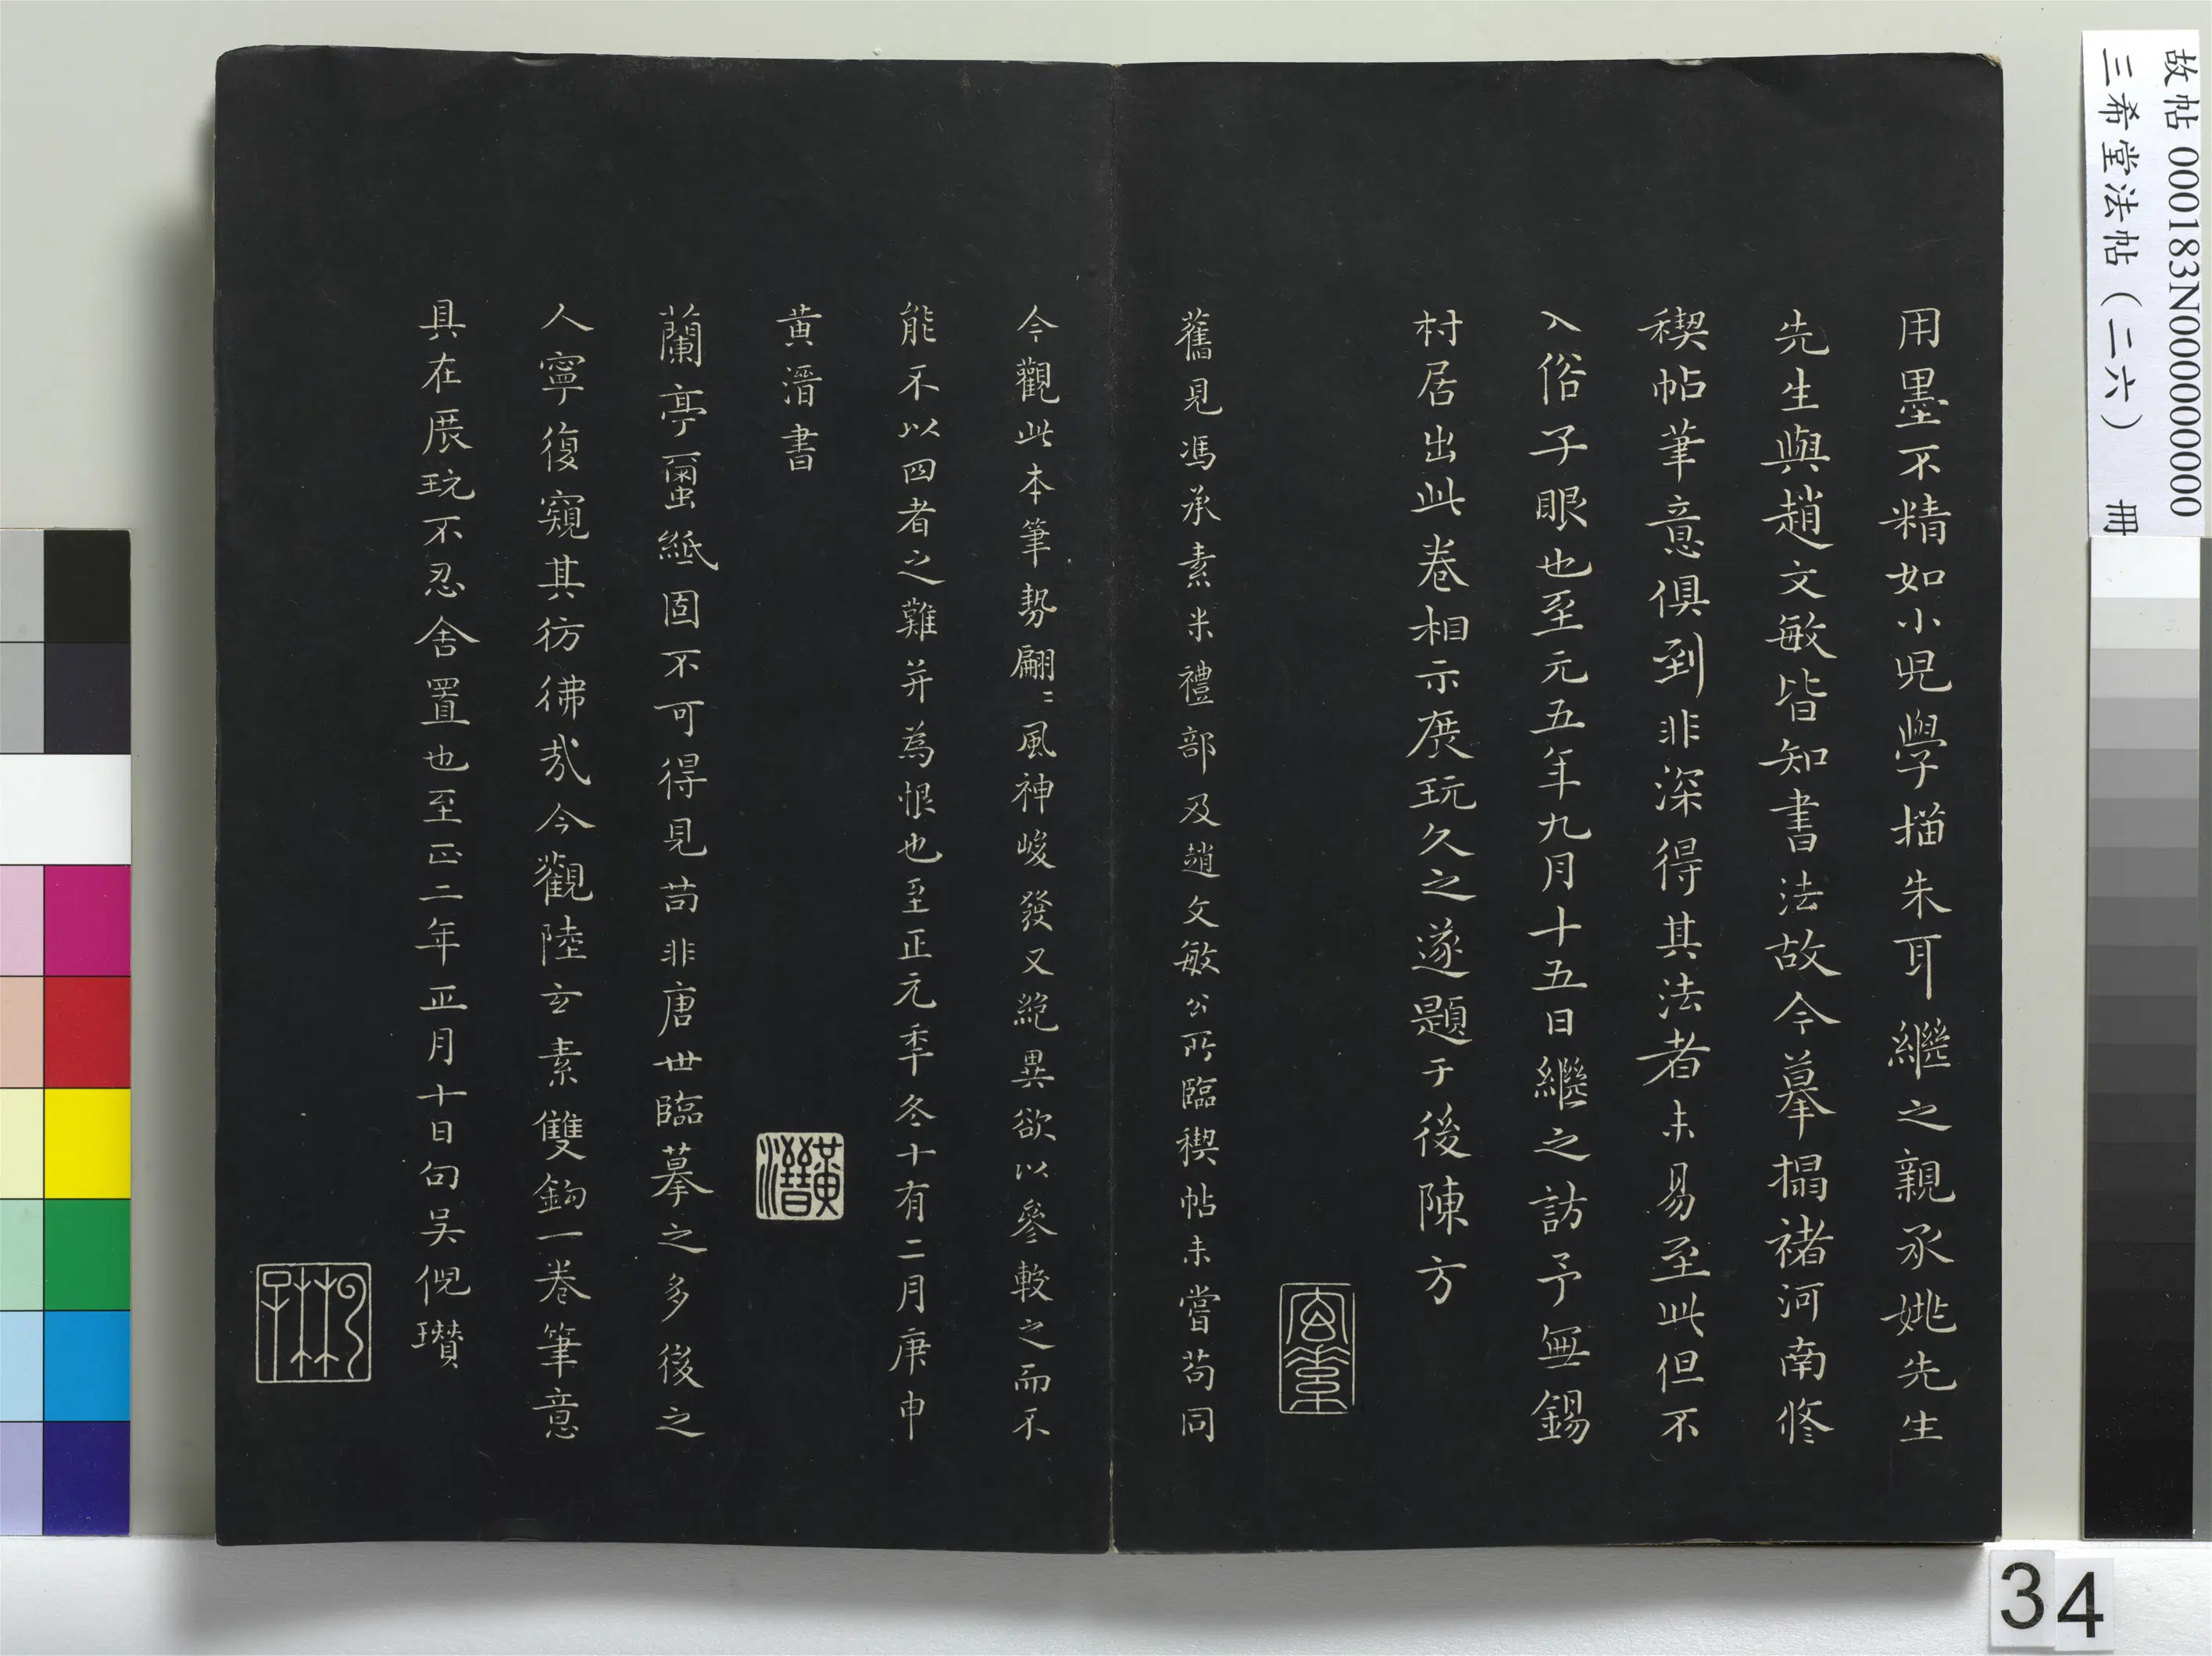 用墨不精如小児學描朱耳繼之親承姚先生
先生與趙文敏皆知書法故今摹搨禇河南修
稧帖筆意俱到非深得其法者未易至此但不
入俗子眼也至元五年九月十五日繼之訪予無錫
村居出此卷相示展玩久之遂題于後陳方
舊見馮承素米禮部及趙文敏公所臨稧帖未嘗苟同
今觀此本筆勢翩〻風神峻發又絶異欲以參較之而不
能不以四者之難并為恨也至正元季冬十有二月庚申
黄溍書
黃溍
蘭亭蠒紙固不可得見苟非唐世臨摹之多後之
人寧復窺其彷彿哉今觀陸玄素雙鉤一卷筆意
具在展玩不忍舍置也至正二年正月十日句吴倪瓚
故帖 000183N000000000
三希堂法帖（二六） 冊
34